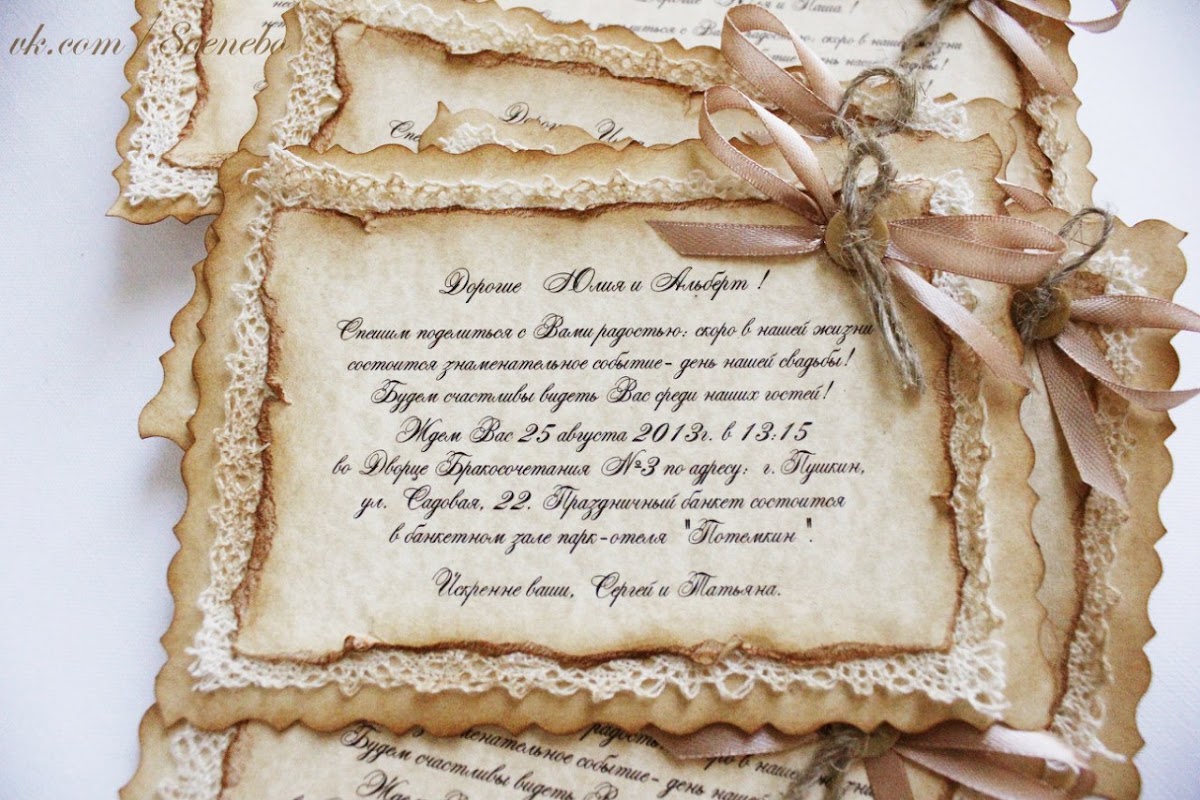 vk.com / Soenebo
Дорогие Юля и Паша !
скоро в нашей жизни
Дорогие Юлия и Альберт !
Спешим поделиться с Вами радостью: скоро в нашей жизни
состоится знаменательное событие- день нашей свадьбы!
Будем счастливы видеть Вас среди наших гостей!
Ждем Вас 25 августа 2013г. в 13:15
во Дворце Бракосочетания №3 по адресу: г. Пушкин,
ул. Садовая, 22. Праздничный банкет состоится
в банкетном зале парк-отеля "Потемкин".
Искренне ваши, Сергей и Татьяна.
радость:
знаменательное событие- день нашей
Будем счастливы видеть Вас среди
Ждем Вас 25 августа